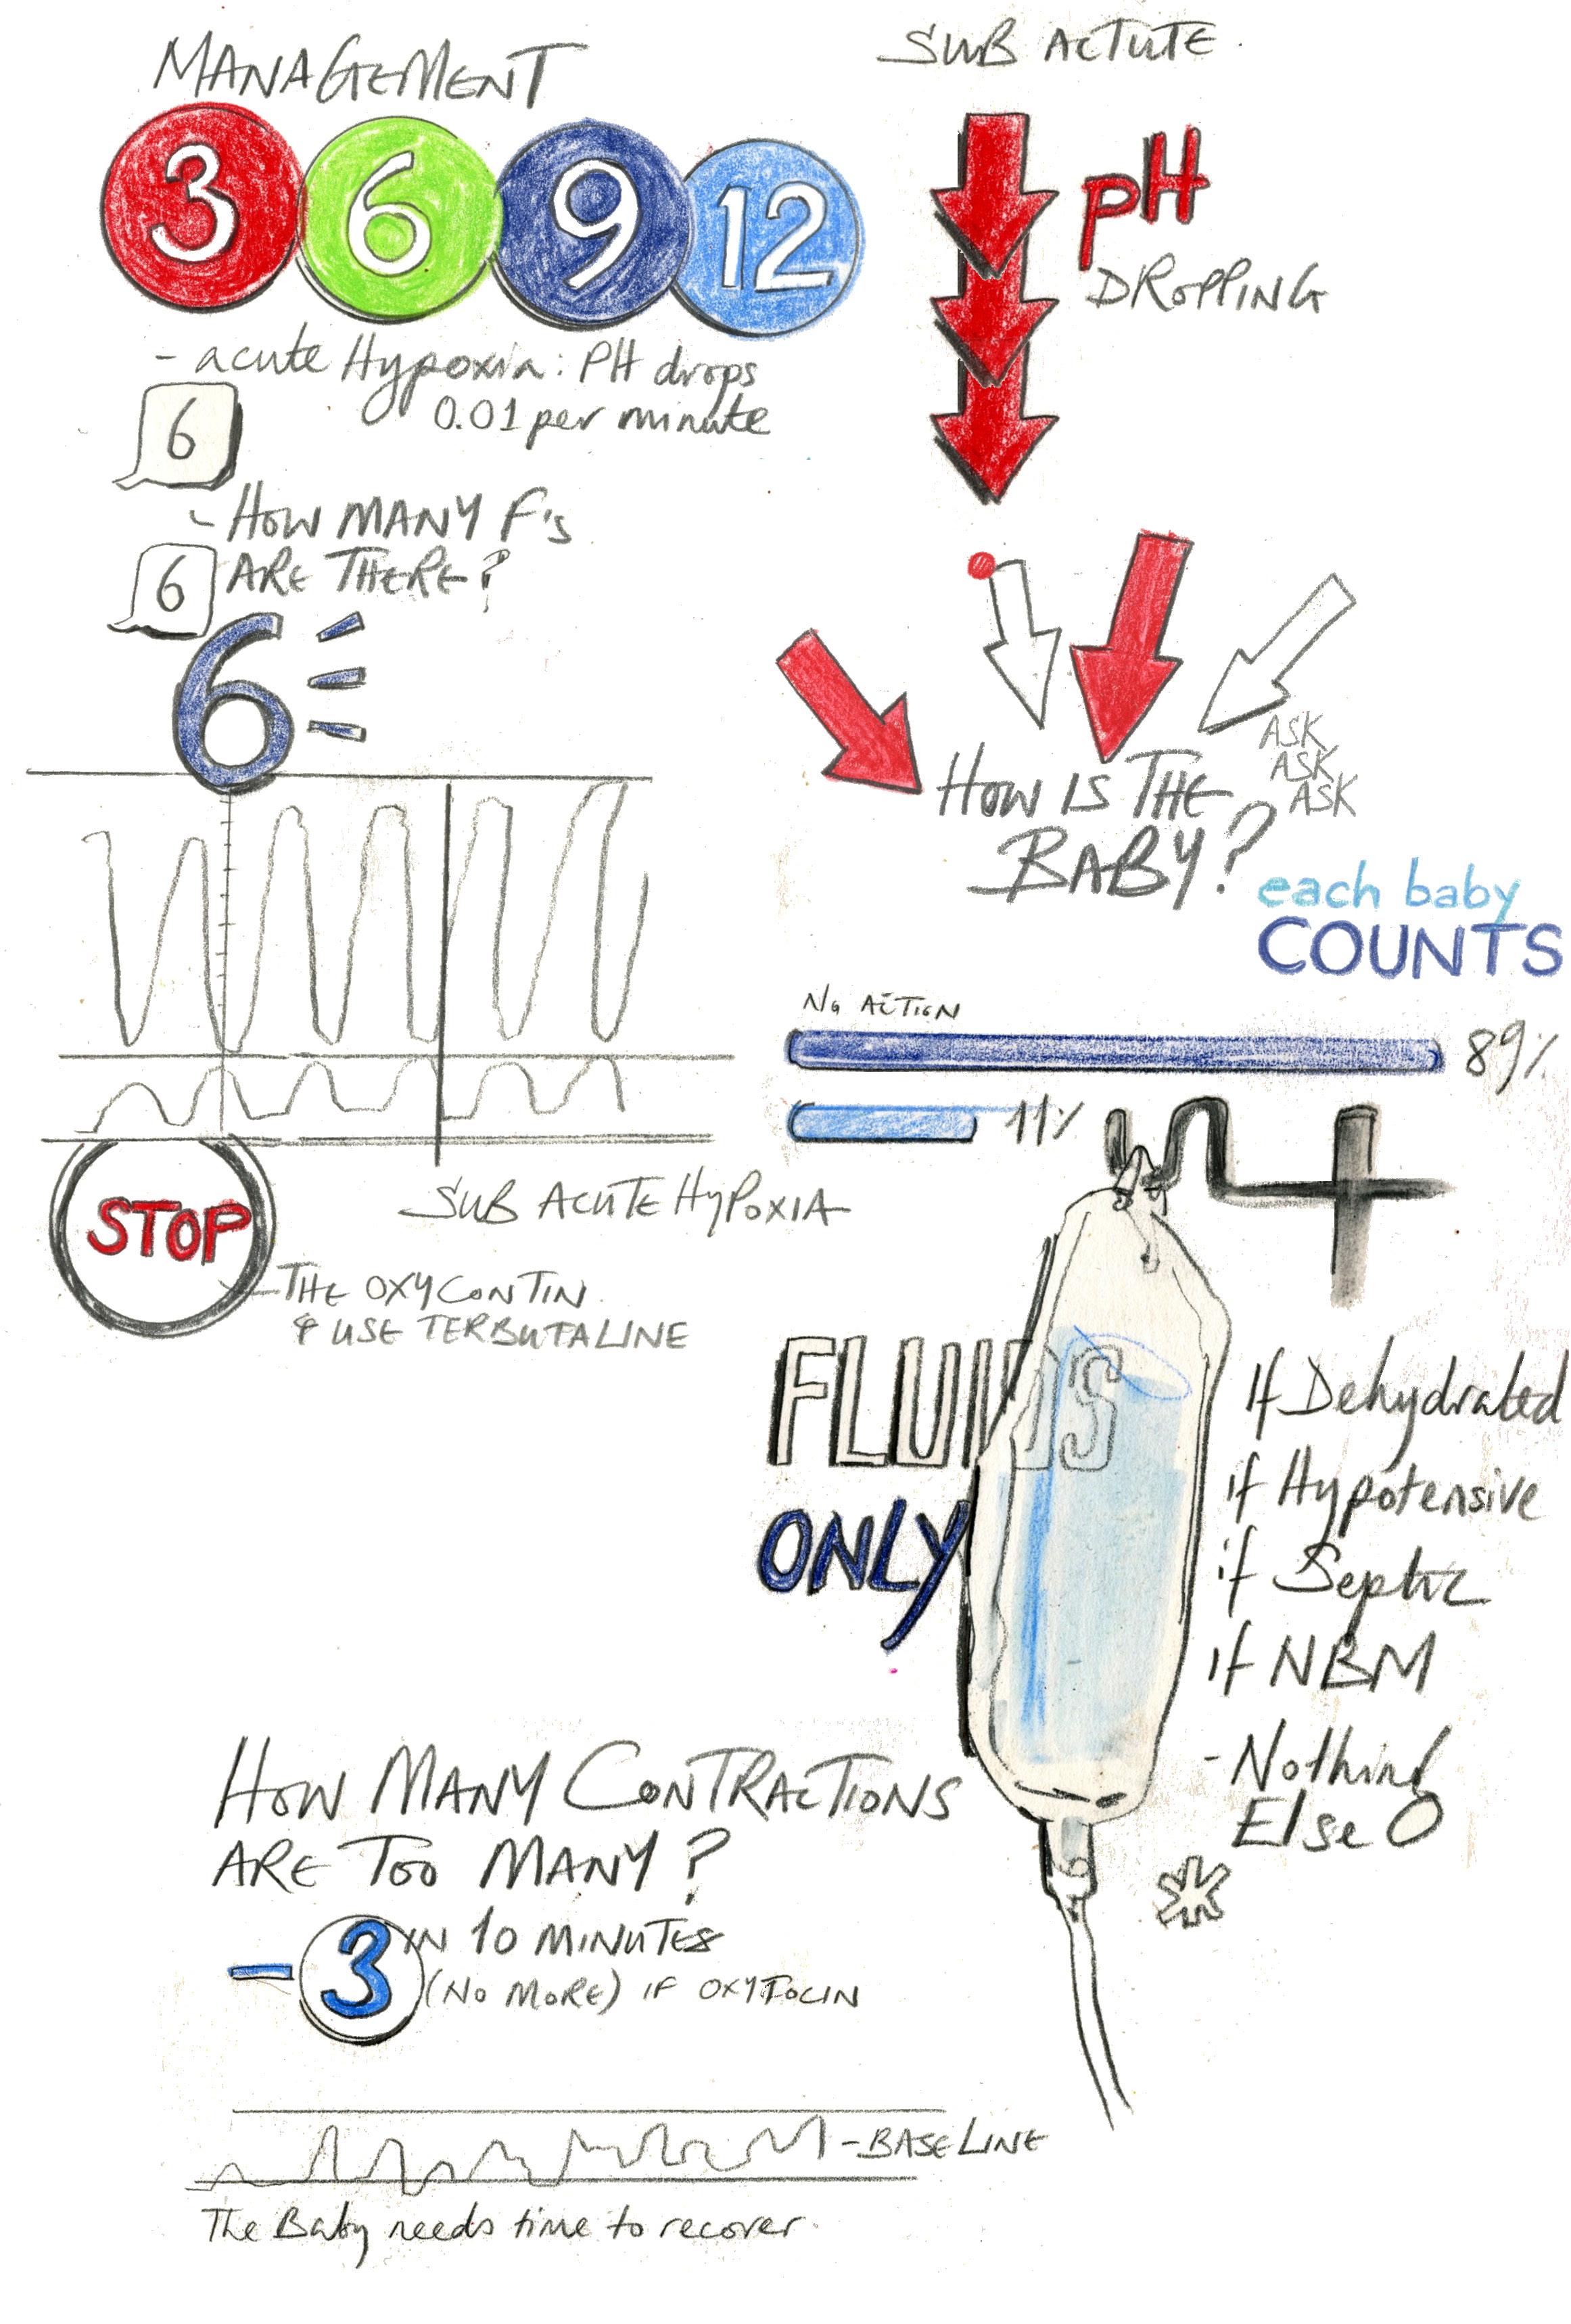 MANAGEMENT
3 6 9 12
- acute Hypoxia: PH drops
0.01 per minute
6
- HOW MANY F's
ARE THERE?
6
6
STOP
SUB ACUTE HYPOXIA
- THE OXYCONTIN
& USE TERBUTALINE
SUB ACTUTE.
pH
DROPPING
HOW IS THE
BABY?
ASK
ASK
ASK
each baby
COUNTS
NO ACTION
89%
11%
FLUIDS
ONLY
If Dehydrated
if Hypotensive
if Septic
if NBM
- Nothing
Else O
*
HOW MANY CONTRACTIONS
ARE TOO MANY?
- 3 IN 10 MINUTES
(NO MORE) IF OXYTOCIN
- BASELINE
The Baby needs time to recover.